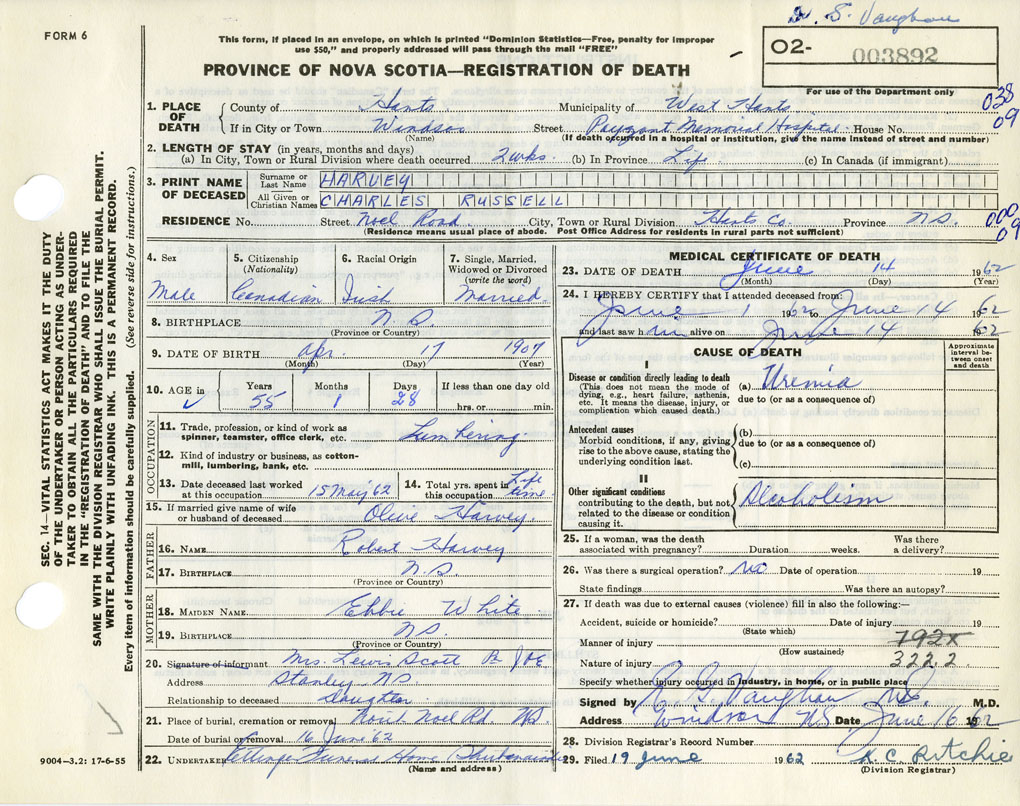 W. S. Vaughan
FORM 6
This form, if placed in an envelope, on which is printed "Dominion Statistics—Free, penalty for improper
use $50," and properly addressed will pass through the mail "FREE"
O2- 003892
PROVINCE OF NOVA SCOTIA—REGISTRATION OF DEATH
For use of the Department only
1. PLACE OF DEATH
County of Hants Municipality of West Hants 038
If in City or Town Windsor Street Payzant Memorial Hospital House No. 09
(Name) (If death occurred in a hospital or institution, give the name instead of street and number)
2. LENGTH OF STAY (in years, months and days)
(a) In City, Town or Rural Division where death occurred 2 wks. (b) In Province Life (c) In Canada (if immigrant)
3. PRINT NAME OF DECEASED
Surname or Last Name HARVEY
All Given or Christian Names CHARLES RUSSELL
RESIDENCE No. Street Noel Road City, Town or Rural Division Hants Co. Province N.S. 000
(Residence means usual place of abode. Post Office Address for residents in rural parts not sufficient) 09
4. Sex Male
5. Citizenship (Nationality) Canadian
6. Racial Origin Irish
7. Single, Married, Widowed or Divorced (write the word) Married
8. BIRTHPLACE N.S.
(Province or Country)
9. DATE OF BIRTH Apr. 17 1907
(Month) (Day) (Year)
10. AGE in Years Months Days If less than one day old
✓ 55 1 28 hrs. or min.
OCCUPATION
11. Trade, profession, or kind of work as
spinner, teamster, office clerk, etc. Lumbering
12. Kind of industry or business, as cotton-
mill, lumbering, bank, etc.
13. Date deceased last worked
at this occupation 15 May 62
14. Total yrs. spent in
this occupation Life time
15. If married give name of wife
or husband of deceased Olive Harvey.
FATHER
16. NAME Robert Harvey
17. BIRTHPLACE N.S.
(Province or Country)
MOTHER
18. MAIDEN NAME White
19. BIRTHPLACE N.S.
(Province or Country)
20. Signature of informant Mrs. Lewis Scott
Address Stanley N.S.
Relationship to deceased Daughter
21. Place of burial, cremation or removal Noel Rd. N.S.
Date of burial or removal 16 June 62
22. UNDERTAKER Funeral Home
(Name and address)
MEDICAL CERTIFICATE OF DEATH
23. DATE OF DEATH June 14 1962
(Month) (Day) (Year)
24. I HEREBY CERTIFY that I attended deceased from:
June 1 1962 to June 14 1962
and last saw him alive on June 14 1962
CAUSE OF DEATH
Approximate interval be-
tween onset
and death
I
Disease or condition directly leading to death
(This does not mean the mode of
dying, e.g., heart failure, asthenia,
etc. It means the disease, injury, or
complication which caused death.)
(a) Uremia
due to (or as a consequence of)
Antecedent causes
Morbid conditions, if any, giving
rise to the above cause, stating the
underlying condition last.
(b)
due to (or as a consequence of)
(c)
II
Other significant conditions
contributing to the death, but not
related to the disease or condition
causing it.
Alcoholism
25. If a woman, was the death
associated with pregnancy? Duration weeks. Was there
a delivery?
26. Was there a surgical operation? No Date of operation 19
State findings Was there an autopsy?
27. If death was due to external causes (violence) fill in also the following:—
Accident, suicide or homicide? Date of injury 19
(State which)
Manner of injury 792x
(How sustained)
Nature of injury 322.2
Specify whether injury occurred in industry, in home, or in public place
Signed by Vaughan M.D.
Address Windsor N.S. Date June 16 1962
28. Division Registrar's Record Number
29. Filed 19 June 1962 H. C. Ritchie
(Division Registrar)
SEC. 14—VITAL STATISTICS ACT MAKES IT THE DUTY
OF THE UNDERTAKER OR PERSON ACTING AS UNDER-
TAKER TO OBTAIN ALL THE PARTICULARS REQUIRED
IN THE "REGISTRATION OF DEATH" AND TO FILE THE
SAME WITH THE DIVISION REGISTRAR WHO SHALL ISSUE THE BURIAL PERMIT.
WRITE PLAINLY WITH UNFADING INK. THIS IS A PERMANENT RECORD.
Every item of information should be carefully supplied. (See reverse side for instructions.)
9004—3.2: 17-6-55